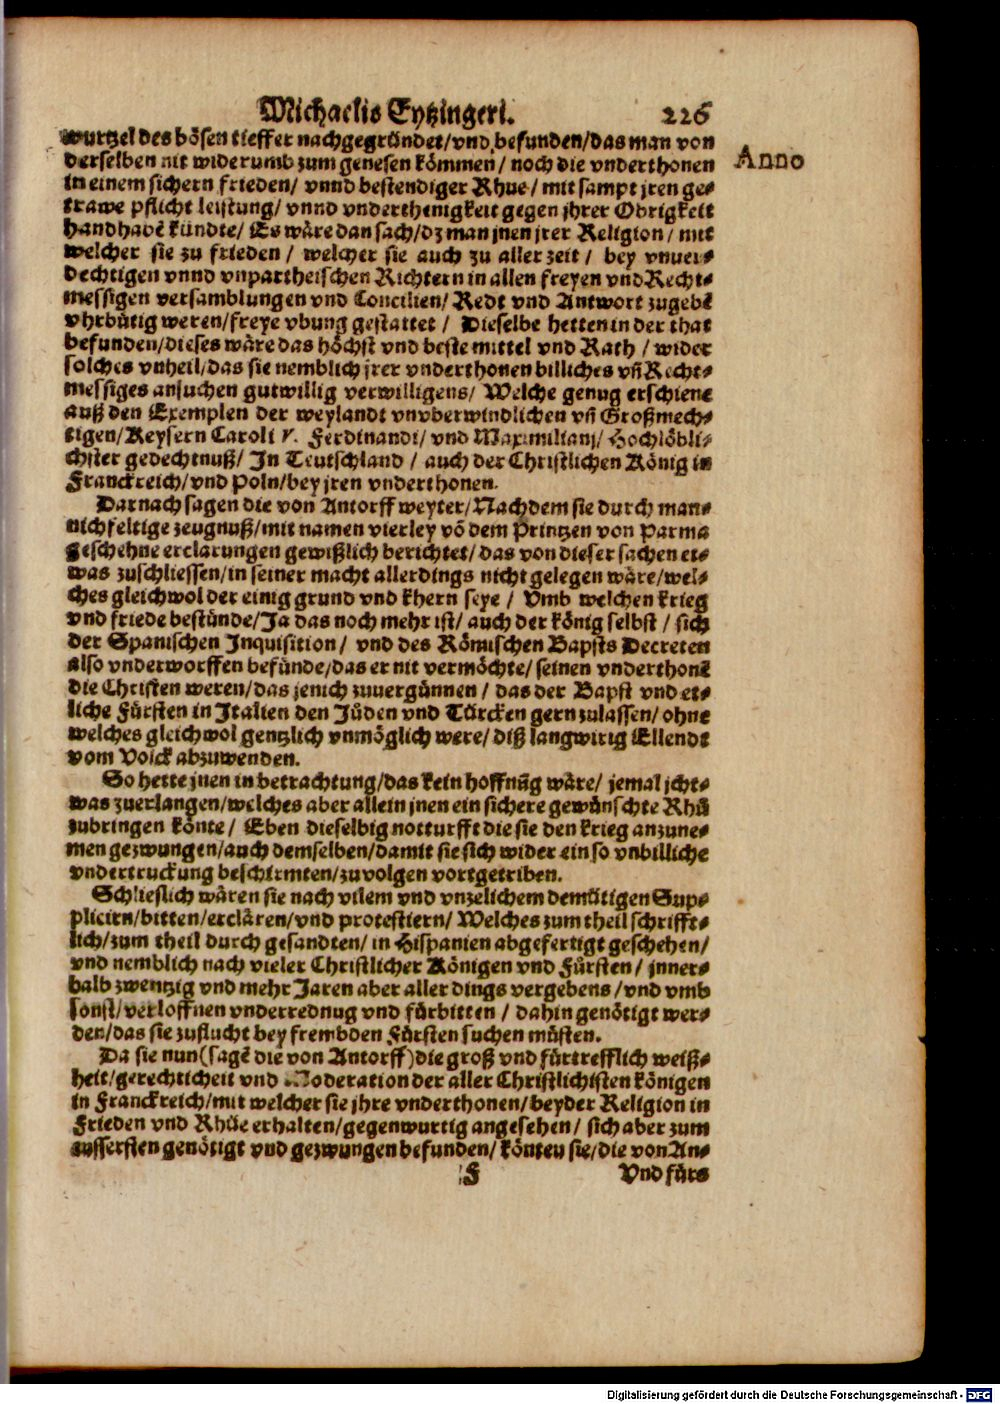 Michaelis Eytzingeri. 226
Anno
wurtzel des bösen tieffer nachgegründet/vnd befunden/das man von
derselben nit widerumb zum genesen kömmen/ noch die vnderthonen
in einem sichern frieden/ vnnd bestendiger Rhue/ mit sampt jren ge-
trawe pflicht leistung/ vnnd vnderthenigkeit gegen jhrer Obrigkeit
handhabē kündte/ Es wäre dan sach/dz man jnen jrer Religion/ mit
welcher sie zu frieden / welcher sie auch zu aller zeit / bey vnuer-
dechtigen vnnd vnpartheischen Richtern in allen freyen vnd Recht-
messigen versamblungen vnd Concilien/ Redt vnd Antwort zugebē
vhrbütig weren/freye vbung gestattet / Dieselbe hetten in der that
befunden/dieses wäre das höchst vnd beste mittel vnd Rath / wider
solches vnheil/das sie nemblich jrer vnderthonen billiches vñ Recht-
messiges ansuchen gutwillig verwilligens/ Welche genug erschiene
auß den Exemplen der weylandt vnvberwindlichen vñ Großmech-
tigen/Keysern Caroli V. Ferdinandi/ vnd Maximilianj/ Hochlöbli-
chster gedechtnuß/ In Teutschland / auch der Christlichen König in
Franckreich/vnd Poln/bey jren vnderthonen.
Darnach sagen die von Antorff weyter/Nachdem sie durch man-
nichfeltige zeugnuß/mit namen vierley vō dem Printzen von Parma
geschehne erclarungen gewißlich berichtet/das von dieser sachen et-
was zuschliessen/in seiner macht allerdings nicht gelegen wäre/wel-
ches gleichwol der einig grund vnd khern seye / Vmb welchen krieg
vnd friede bestünde/Ja das noch mehr ist/ auch der könig selbst / sich
der Spanischen Inquisition/ vnd des Römischen Bapsts Decreten
also vnderworffen befünde/das er nit vermöchte/ seinen vnderthonē
die Christen weren/das jenich zuuergünnen / das der Bapst vnd et-
liche Fürsten in Italien den Jüden vnd Türcken gern zulassen/ ohne
welches gleichwol gentzlich vnmöglich were/ diß langwirig Ellendt
vom Volck abzuwenden.
So hette jnen in betrachtung/das kein hoffnūg wäre/ jemal jcht-
was zuerlangen/welches aber allein jnen ein sichere gewünschte Rhū
zubringen könte/ Eben dieselbig notturfft die sie den krieg anzune-
men gezwungen/auch demselben/damit sie sich wider ein so vnbilliche
vndertruckung beschirmten/zuvolgen vortgetriben.
Schlieslich wären sie nach vilem vnd vnzelichem demütigen Sup-
pliciren/bitten/erclären/vnd protestiern/ Welches zum theil schrifft-
lich/zum theil durch gesandten/ in Hispanien abgefertigt geschehen/
vnd nemblich nach vieler Christlicher Königen vnd Fürsten/ jnner-
halb zwentzig vnd mehr Jaren aber aller dings vergebens/vnd vmb
sonst/verloffnen vnderrednug vnd fürbitten / dahin genötigt wer-
den/das sie zuflucht bey frembden Fürsten suchen müsten.
Da sie nun(sagē die von Antorff)die groß vnd fürtrefflich weiß-
heit/gerechticheit vnd Moderation der aller Christlichisten königen
in Franckreich/mit welcher sie jhre vnderthonen/beyder Religion in
Frieden vnd Rhüe erhalten/gegenwurtig angesehen/ sich aber zum
aussersten genötigt vnd gezwungen befunden/ könten sie/die von An-
F Vnd fürs
Digitalisierung gefördert durch die Deutsche Forschungsgemeinschaft - DFG